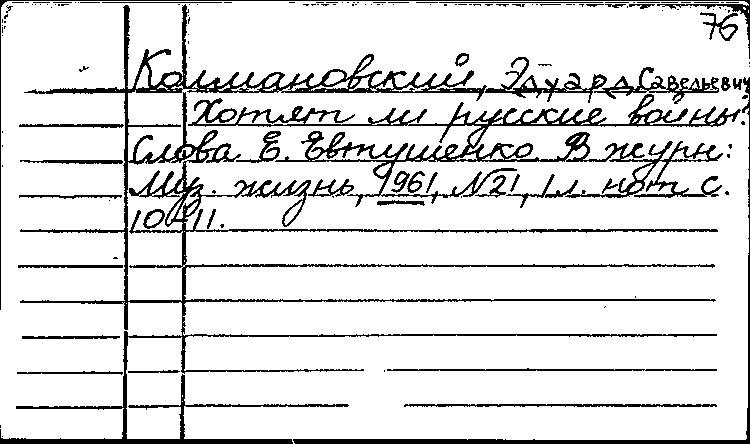 76
Колмановский, Эдуард Савельевич
Хотят ли русские войны?
Слова Е. Евтушенко. В журн:
Муз. жизнь, 1961, N21, 1л. нот с.
10-11.